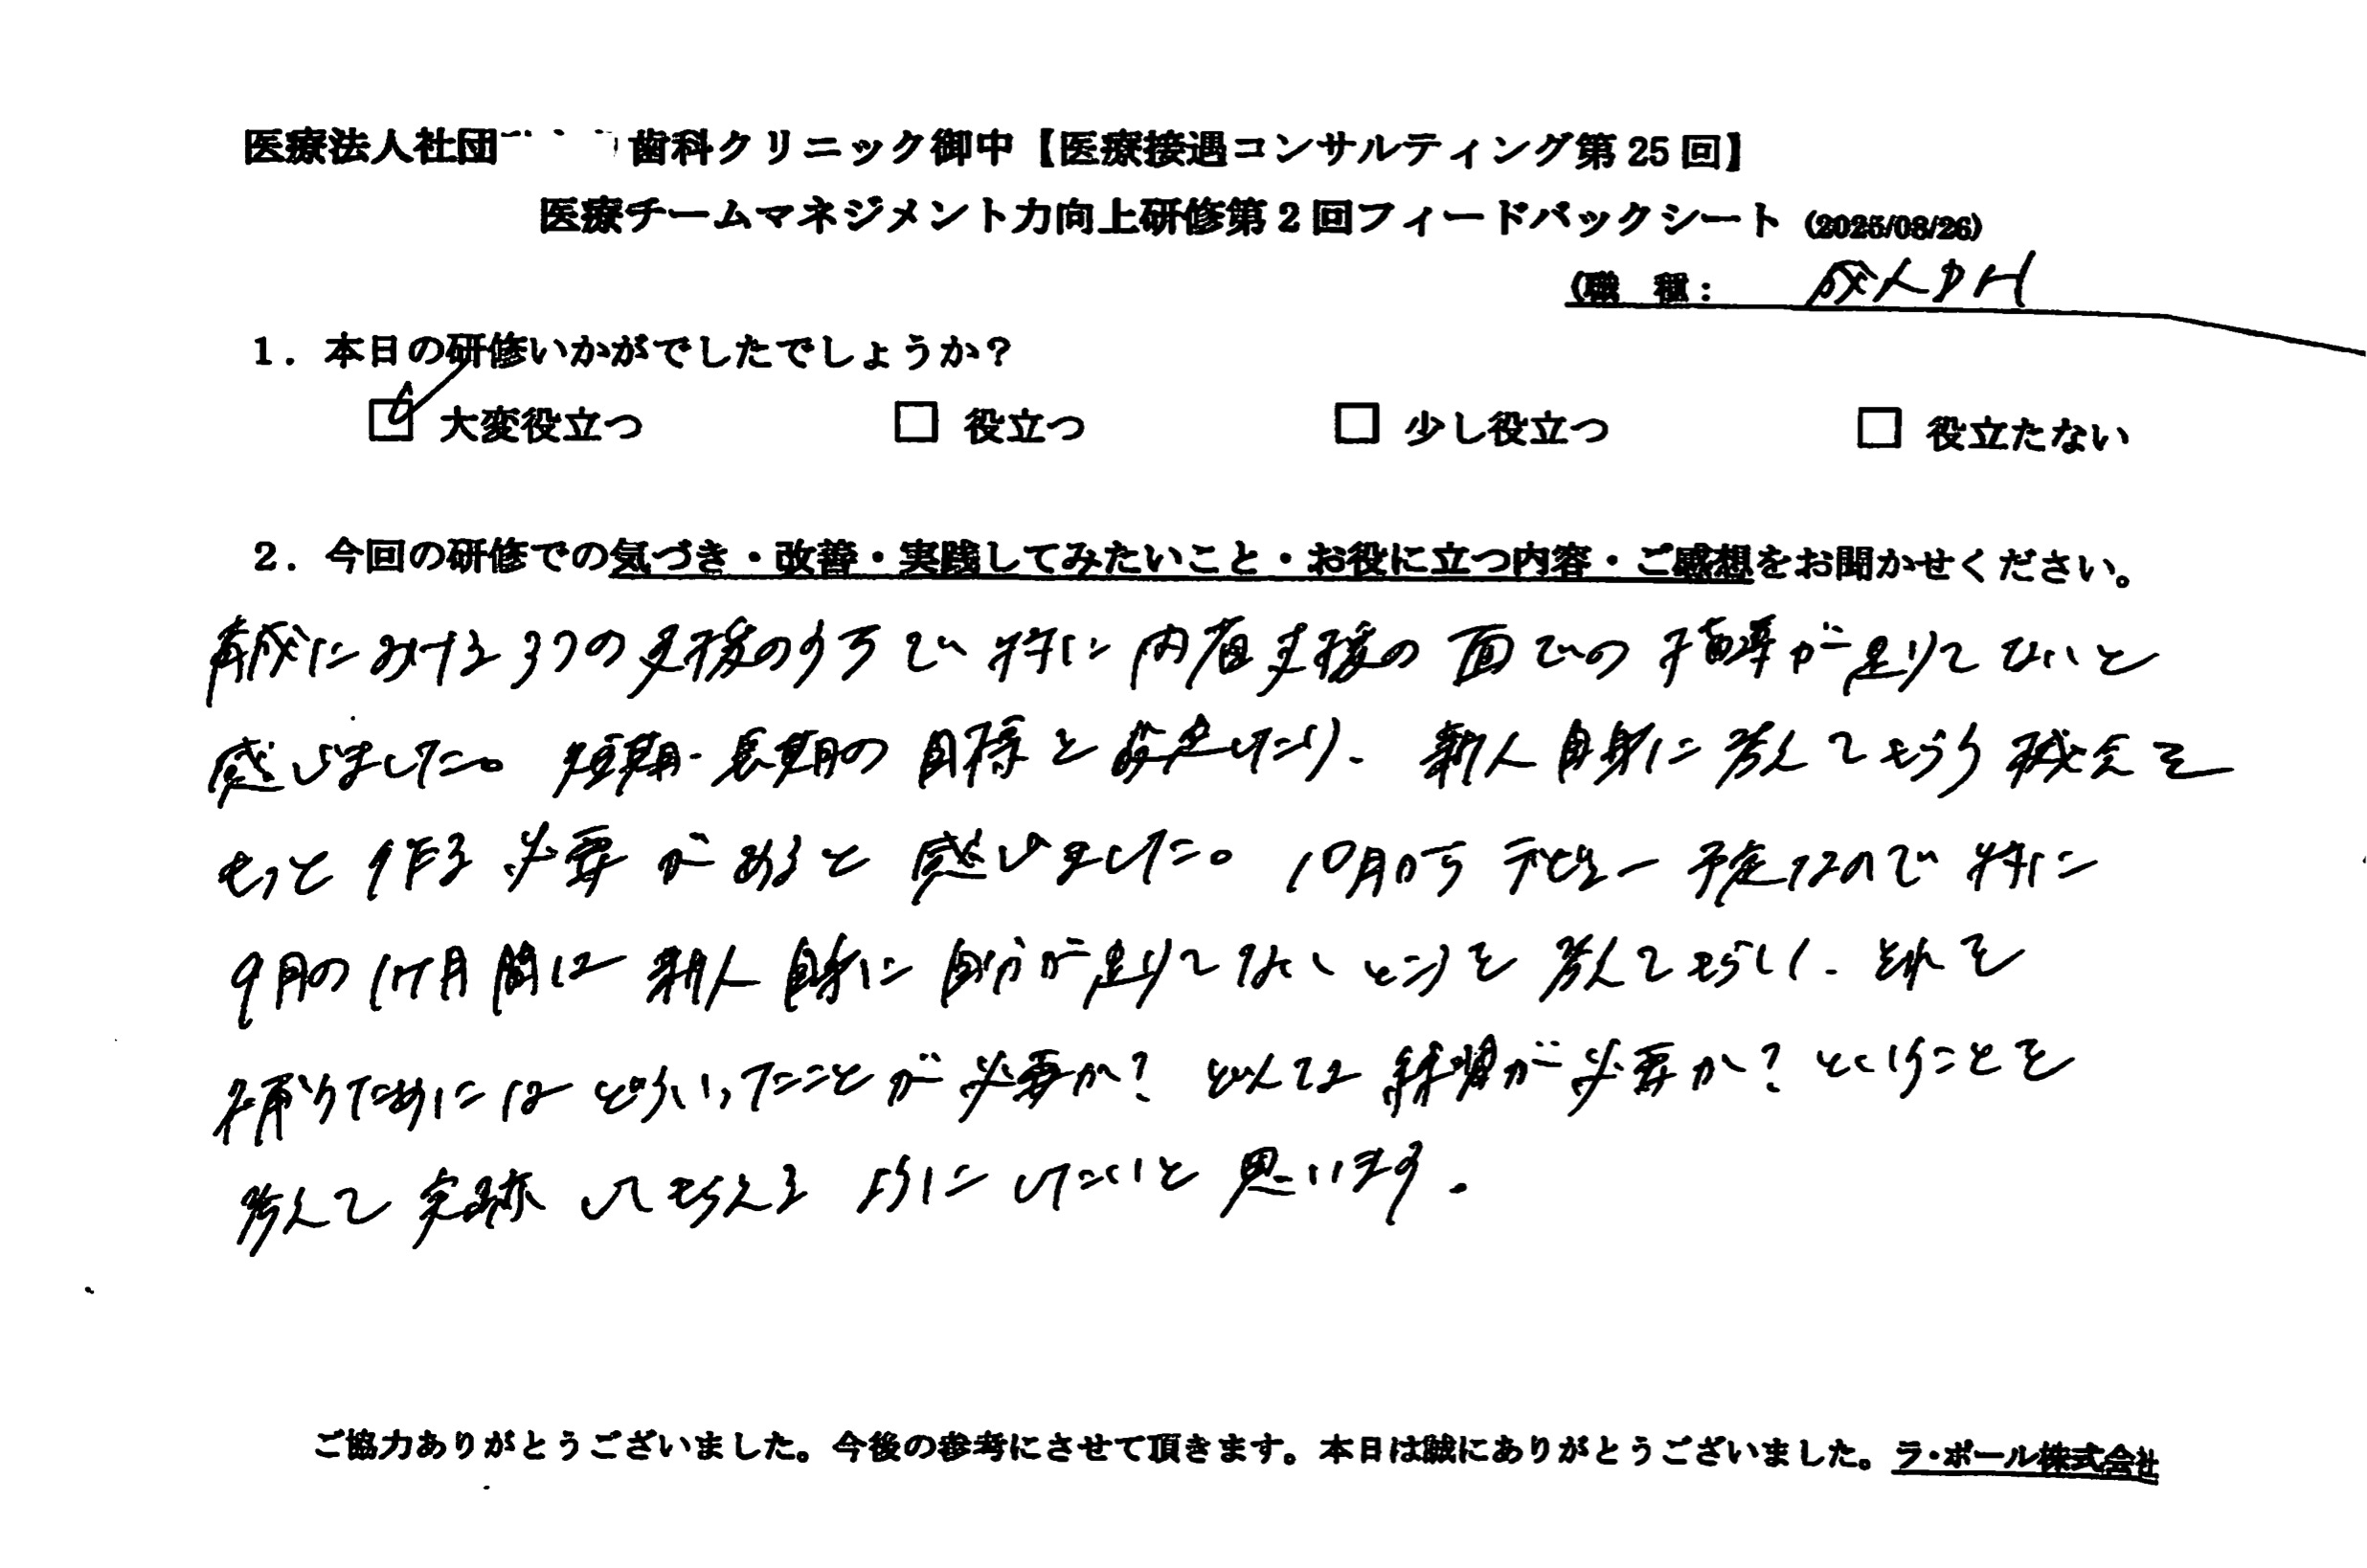 医療法人社団 歯科クリニック御中【医療接遇コンサルティング第25回】
医療チームマネジメント力向上研修第2回フィードバックシート (2025/08/26)
(職 種: 成人DH
1. 本日の研修いかがでしたでしょうか?
☑ 大変役立つ □ 役立つ □ 少し役立つ □ 役立たない
2. 今回の研修での気づき・改善・実践してみたいこと・お役に立つ内容・ご感想をお聞かせください。
育成における3つの支援のうちで 特に 内省支援の 面での 指導が足りてないと
感じました。短期・長期の 目標を したり、新人自身に考えてもらう機会を
もっと作る必要があると感じました。10月からデビュー予定なので特に
9月の1ヶ月間は 新人自身に自分が足りてないところを考えてもらい、それを
補うためにはどういったことが必要か?どんな練習が必要か?ということを
考えて実践してもらえるようにしたいと思います。
ご協力ありがとうございました。今後の参考にさせて頂きます。本日は誠にありがとうございました。ラ・ポール株式会社